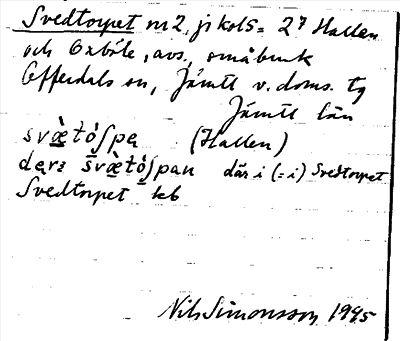 Svedtorpet nr 2, jkols = 27 Hallen
och Oxböle, avs. småbruk
Offerdals sn, Jämtl v. doms. tg
Jämtl län
svæ̀tóspa (Hallen)
svæ̀tóspan där i (= i) Svedtorpet
Svedtorpet kb
Nils Simonsson 1945